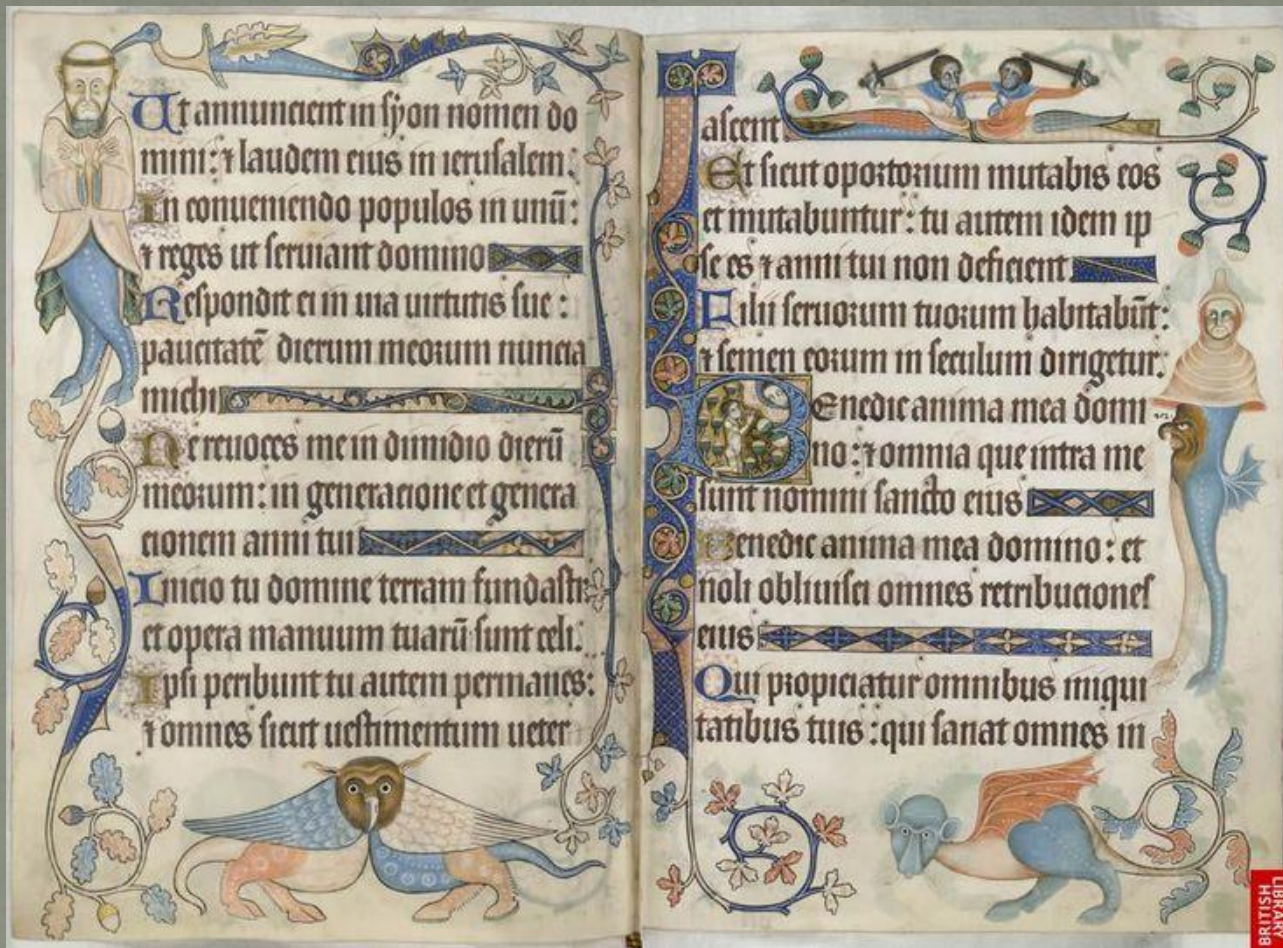 Ut annuncient in syon nomen do
mini: ⁊ laudem eius in ierusalem:
In conueniendo populos in unū:
⁊ reges ut seruiant domino
Respondit ei in uia uirtutis sue:
paucitatē dierum meorum nuncia
michi
Ne reuoces me in dimidio dierū
meorum: in generacione et genera
cionem anni tui
Inicio tu domine terram fundasti:
et opera manuum tuarū sunt celi.
Ipsi peribunt tu autem permanes:
⁊ omnes sicut uestimentum ueter
ascent.
Et sicut oportorium mutabis eos
et mutabuntur: tu autem idem ip
se es ⁊ anni tui non deficient
Filii seruorum tuorum habitabūt:
⁊ semen eorum in seculum dirigetur.
Benedic anima mea domi
no: ⁊ omnia que intra me
sunt nomini sancto eius
Benedic anima mea domino: et
noli obliuisci omnes retribuciones
eius
Qui propiciatur omnibus iniqui
tatibus tuis: qui sanat omnes in
BRITISH
LIBRARY